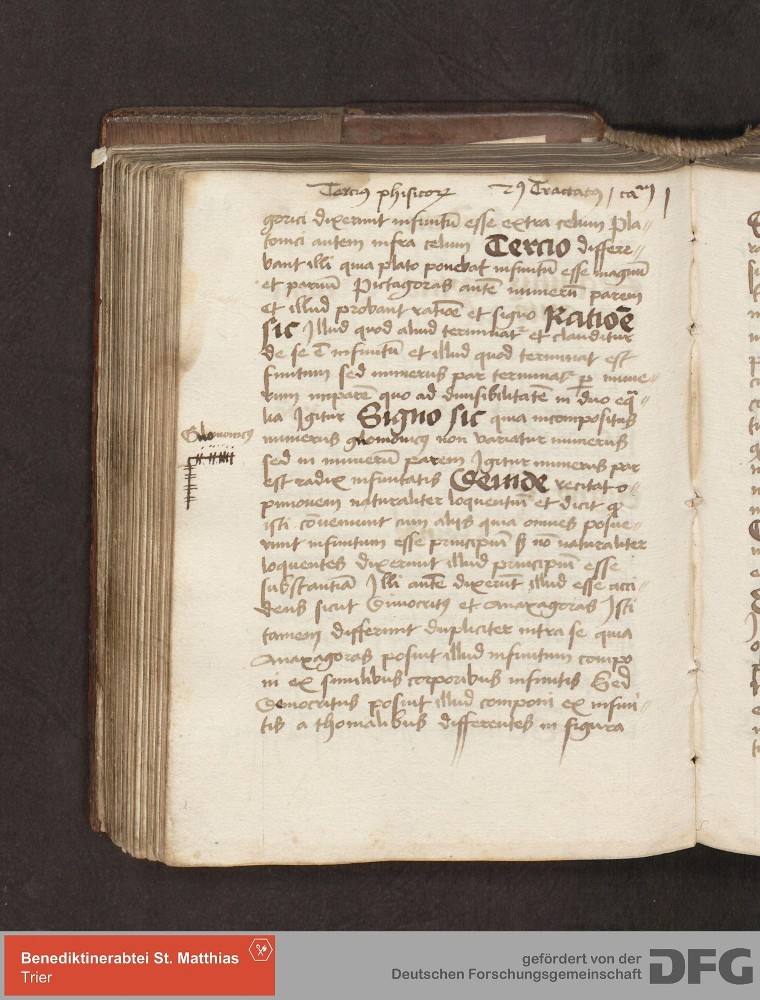 Tercius phisicorum 2us Tractatus / ca
gorici dixerunt infinitū esse extra celum Pla
tonici autem infra celum Tercio differe
bant illi quia plato ponebat infinitū esse magnū
et parvū Pictagoras autē numerū parem
et illud probant ratiōe et signo Ratiōe
sic Illud quod aliud terminat et clauditur
de se ē infinitū et illud quod terminat est
finitum sed numerus par terminat p nume
rum imparē quo ad divisibilitatē in duo eq̄
lia Igitur Signo sic quia incompositus
numerus gnomonicus non variatur numerus
Gnomonicus
sed in numerū parem Igitur numerus par
est radix infinitatis Deinde recitat o
pinionem naturaliter loquentiū et dicit q
isti cōveniunt cum aliis quia omnes posue
runt infinitum esse principiū s nō naturaliter
loquentes dixerunt illud principiū esse
substantiā Illi autē dixerūt illud esse acci
dens sicut Dimocritus et Anaxagoras Isti
tamen differunt dupliciter intra se quia
Anaxagoras posuit illud infinitum compo
ni ex similibus corporibus infinitis Sed
Democritus posuit illud componi ex infini
tis a thomalibus differentes in figura
Benediktinerabtei St. Matthias
Trier
gefördert von der
Deutschen Forschungsgemeinschaft
DFG